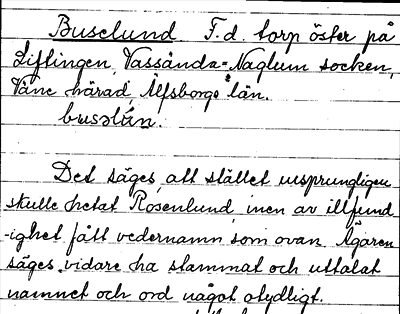 Buselund. F.d. torp öster på
Siftingen, Vassända-Naglum socken,
Väne härad Älfsborgs län.
busəlún.
Det säges, att stället ursprungligen
skulle hetat Rosenlund, men av illfund
-ighet fått vedernamn som ovan. Ägaren
säges vidare ha stammat och uttalat
namnet och ord något otydligt.